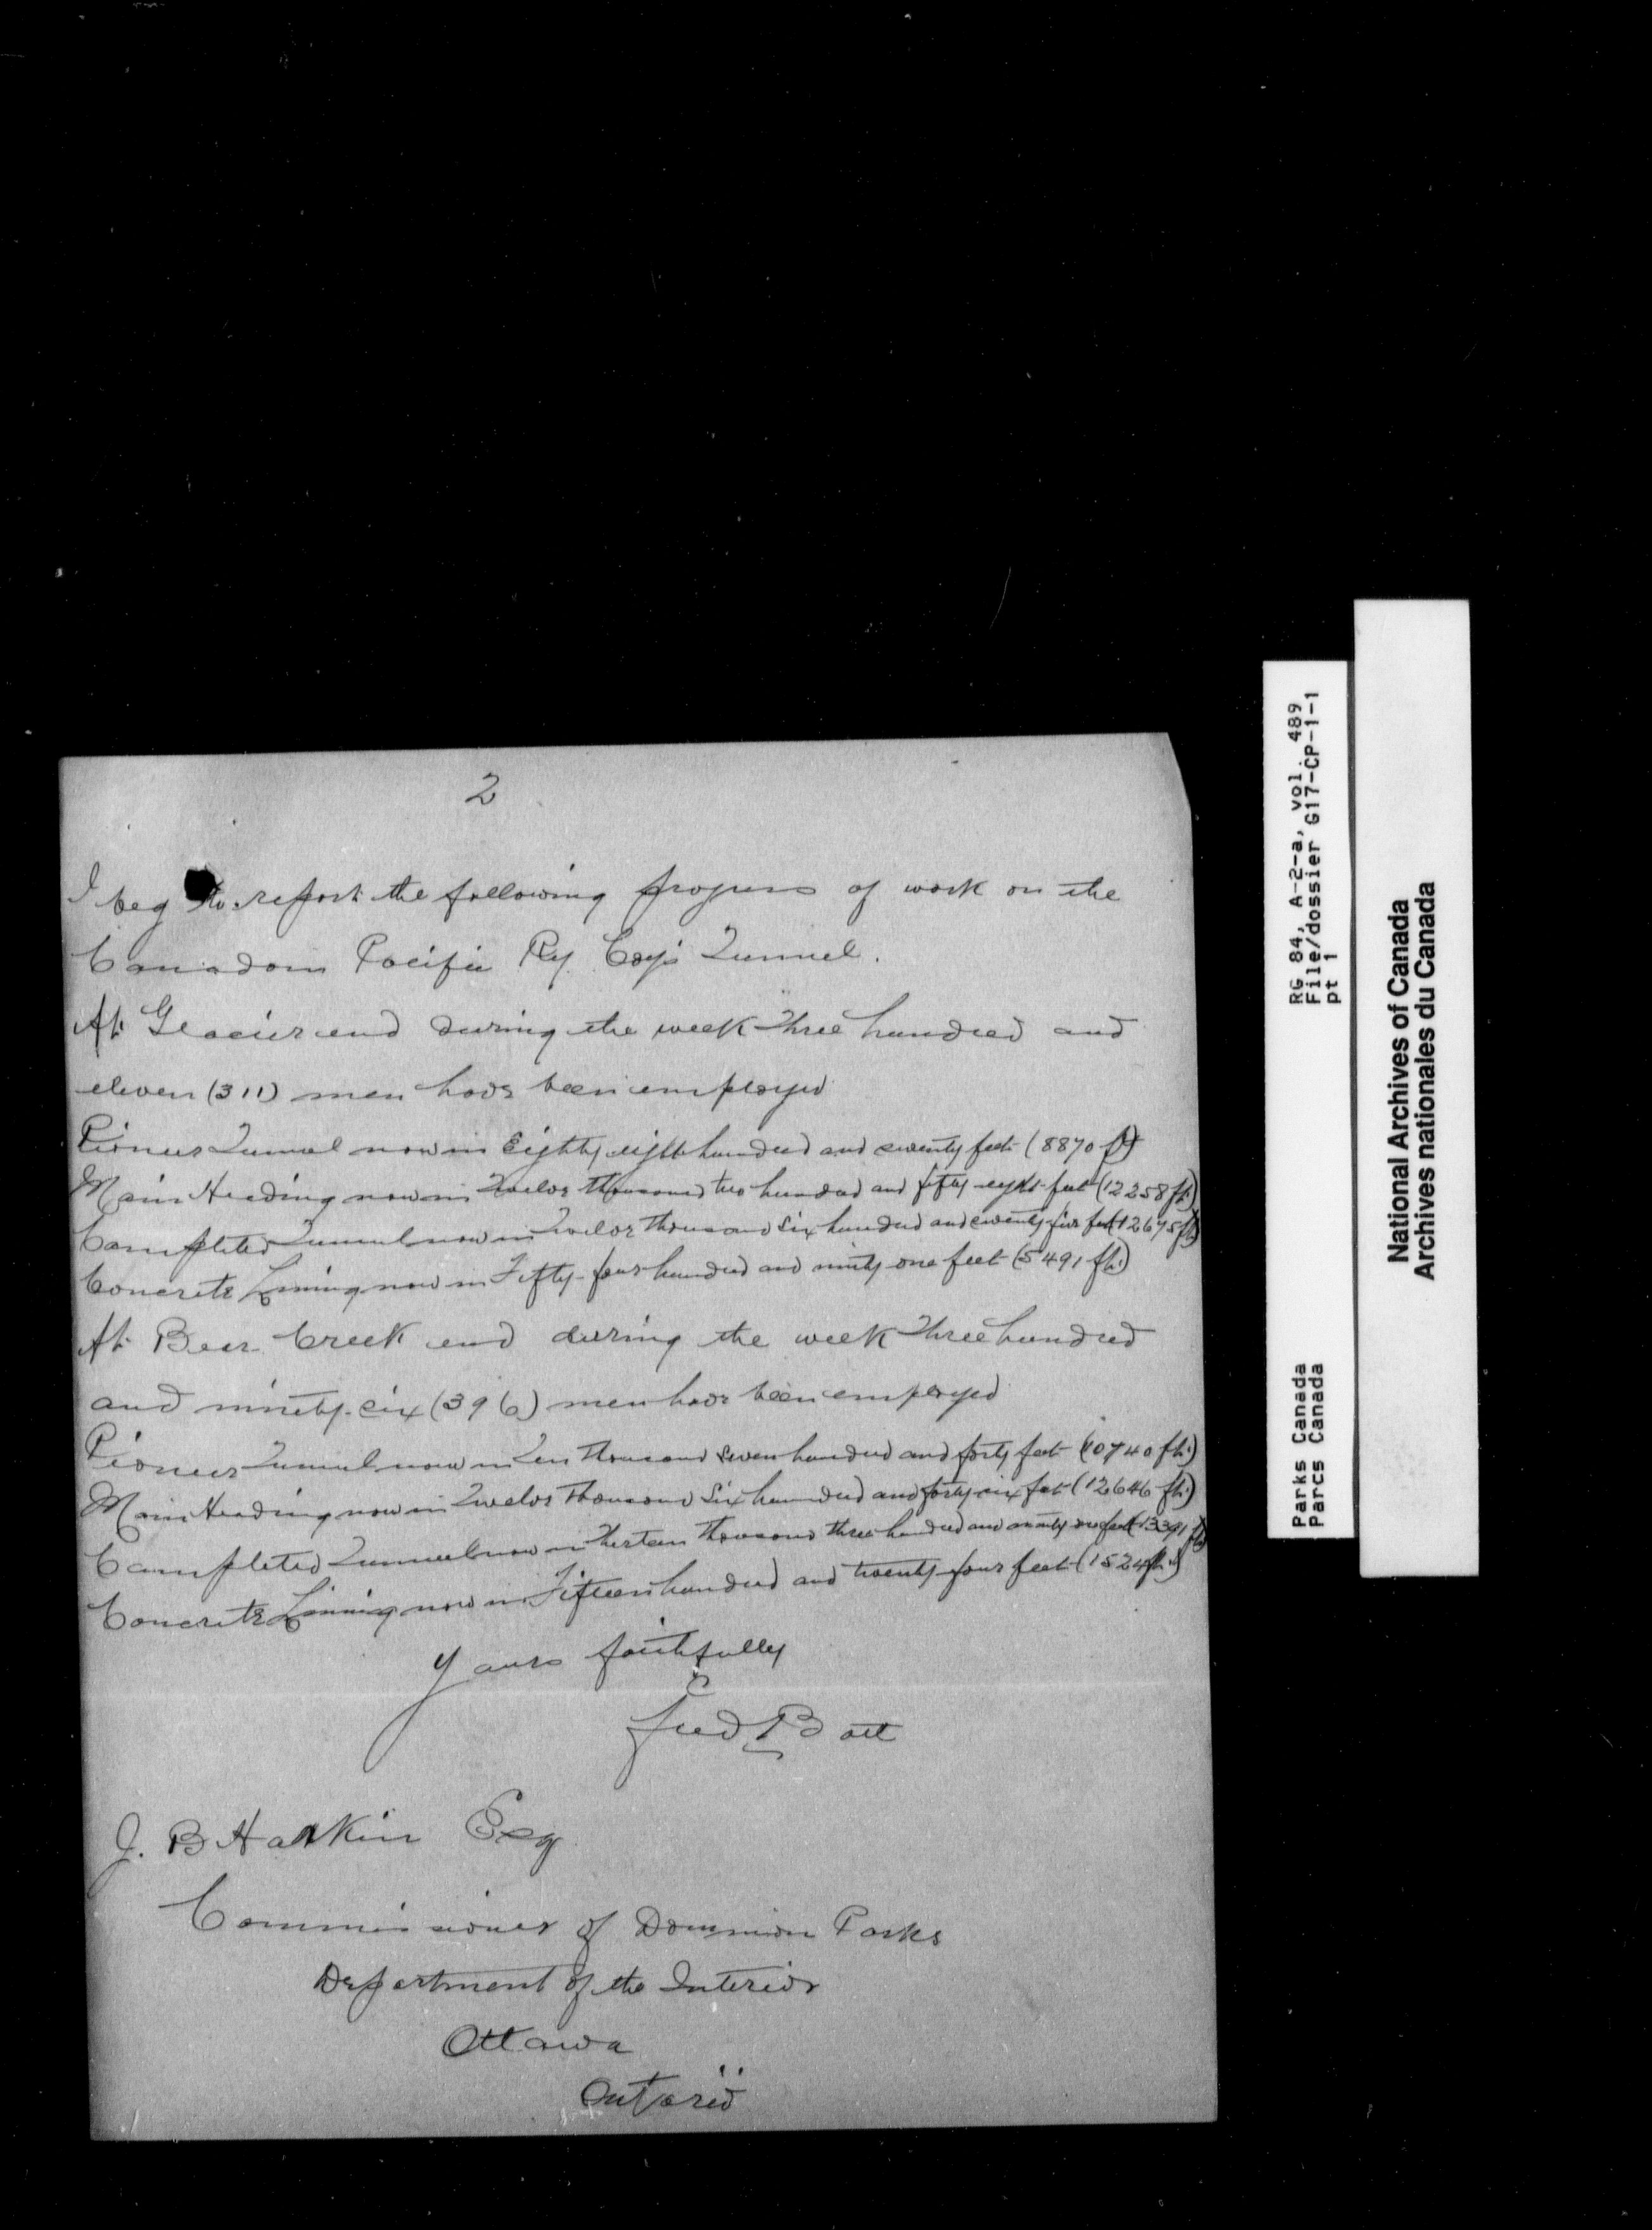 2
I beg to report the following progress of work on the
Canadian Pacific Ry Coy's Tunnel.
At Glacier end during the week three hundred and
eleven (311) men have been employed
Pioneer Tunnel now in Eighty eight hundred and seventy feet (8870 ft)
Main Heading now in Twelve thousand two hundred and fifty eight feet (12258 ft.)
Completed Tunnel now in Twelve thousand six hundred and seventy five feet (12675 ft)
Concrete Lining now in Fifty-four hundred and ninty one feet (5491 ft.)
At Bear Creek end during the week three hundred
and ninety-six (396) men have been employed
Pioneer Tunnel now in Ten thousand seven hundred and forty feet (10740 ft.)
Main Heading now in Twelve thousand six hundred and forty six feet (12646 ft.)
Completed Tunnel now in Thirteen thousand three hundred and ninety one feet (13391 ft)
Concrete Lining now in Fifteen hundred and twenty-four feet (1524 ft.)
Yours faithfully
Fred E Batt
J. B Harkin Esq
Commissioner of Dominion Parks
Department of the Interior
Ottawa
Ontario
Parks Canada
Parcs Canada
RG 84, A-2-a, vol. 489
File/dossier G17-CP-1-1
pt 1
National Archives of Canada
Archives nationales du Canada